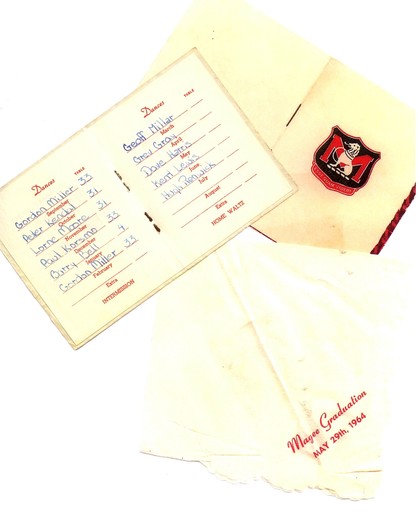 Dances TABLE
Gordon Miller 33
September
Peter Kendal 31
October
Lorne Moore 31
November
Paul Korsman 33
December
Barry Bell 9
January
Gordon Miller 33
February
Extra
INTERMISSION
Dances TABLE
Geoff Millar
March
Greg Gray
April
Dave Harris
May
Kerri Lewis
June
Hugh Renwick
July
August
Extra
HOME WALTZ
M
Magee Graduation
MAY 29th, 1964